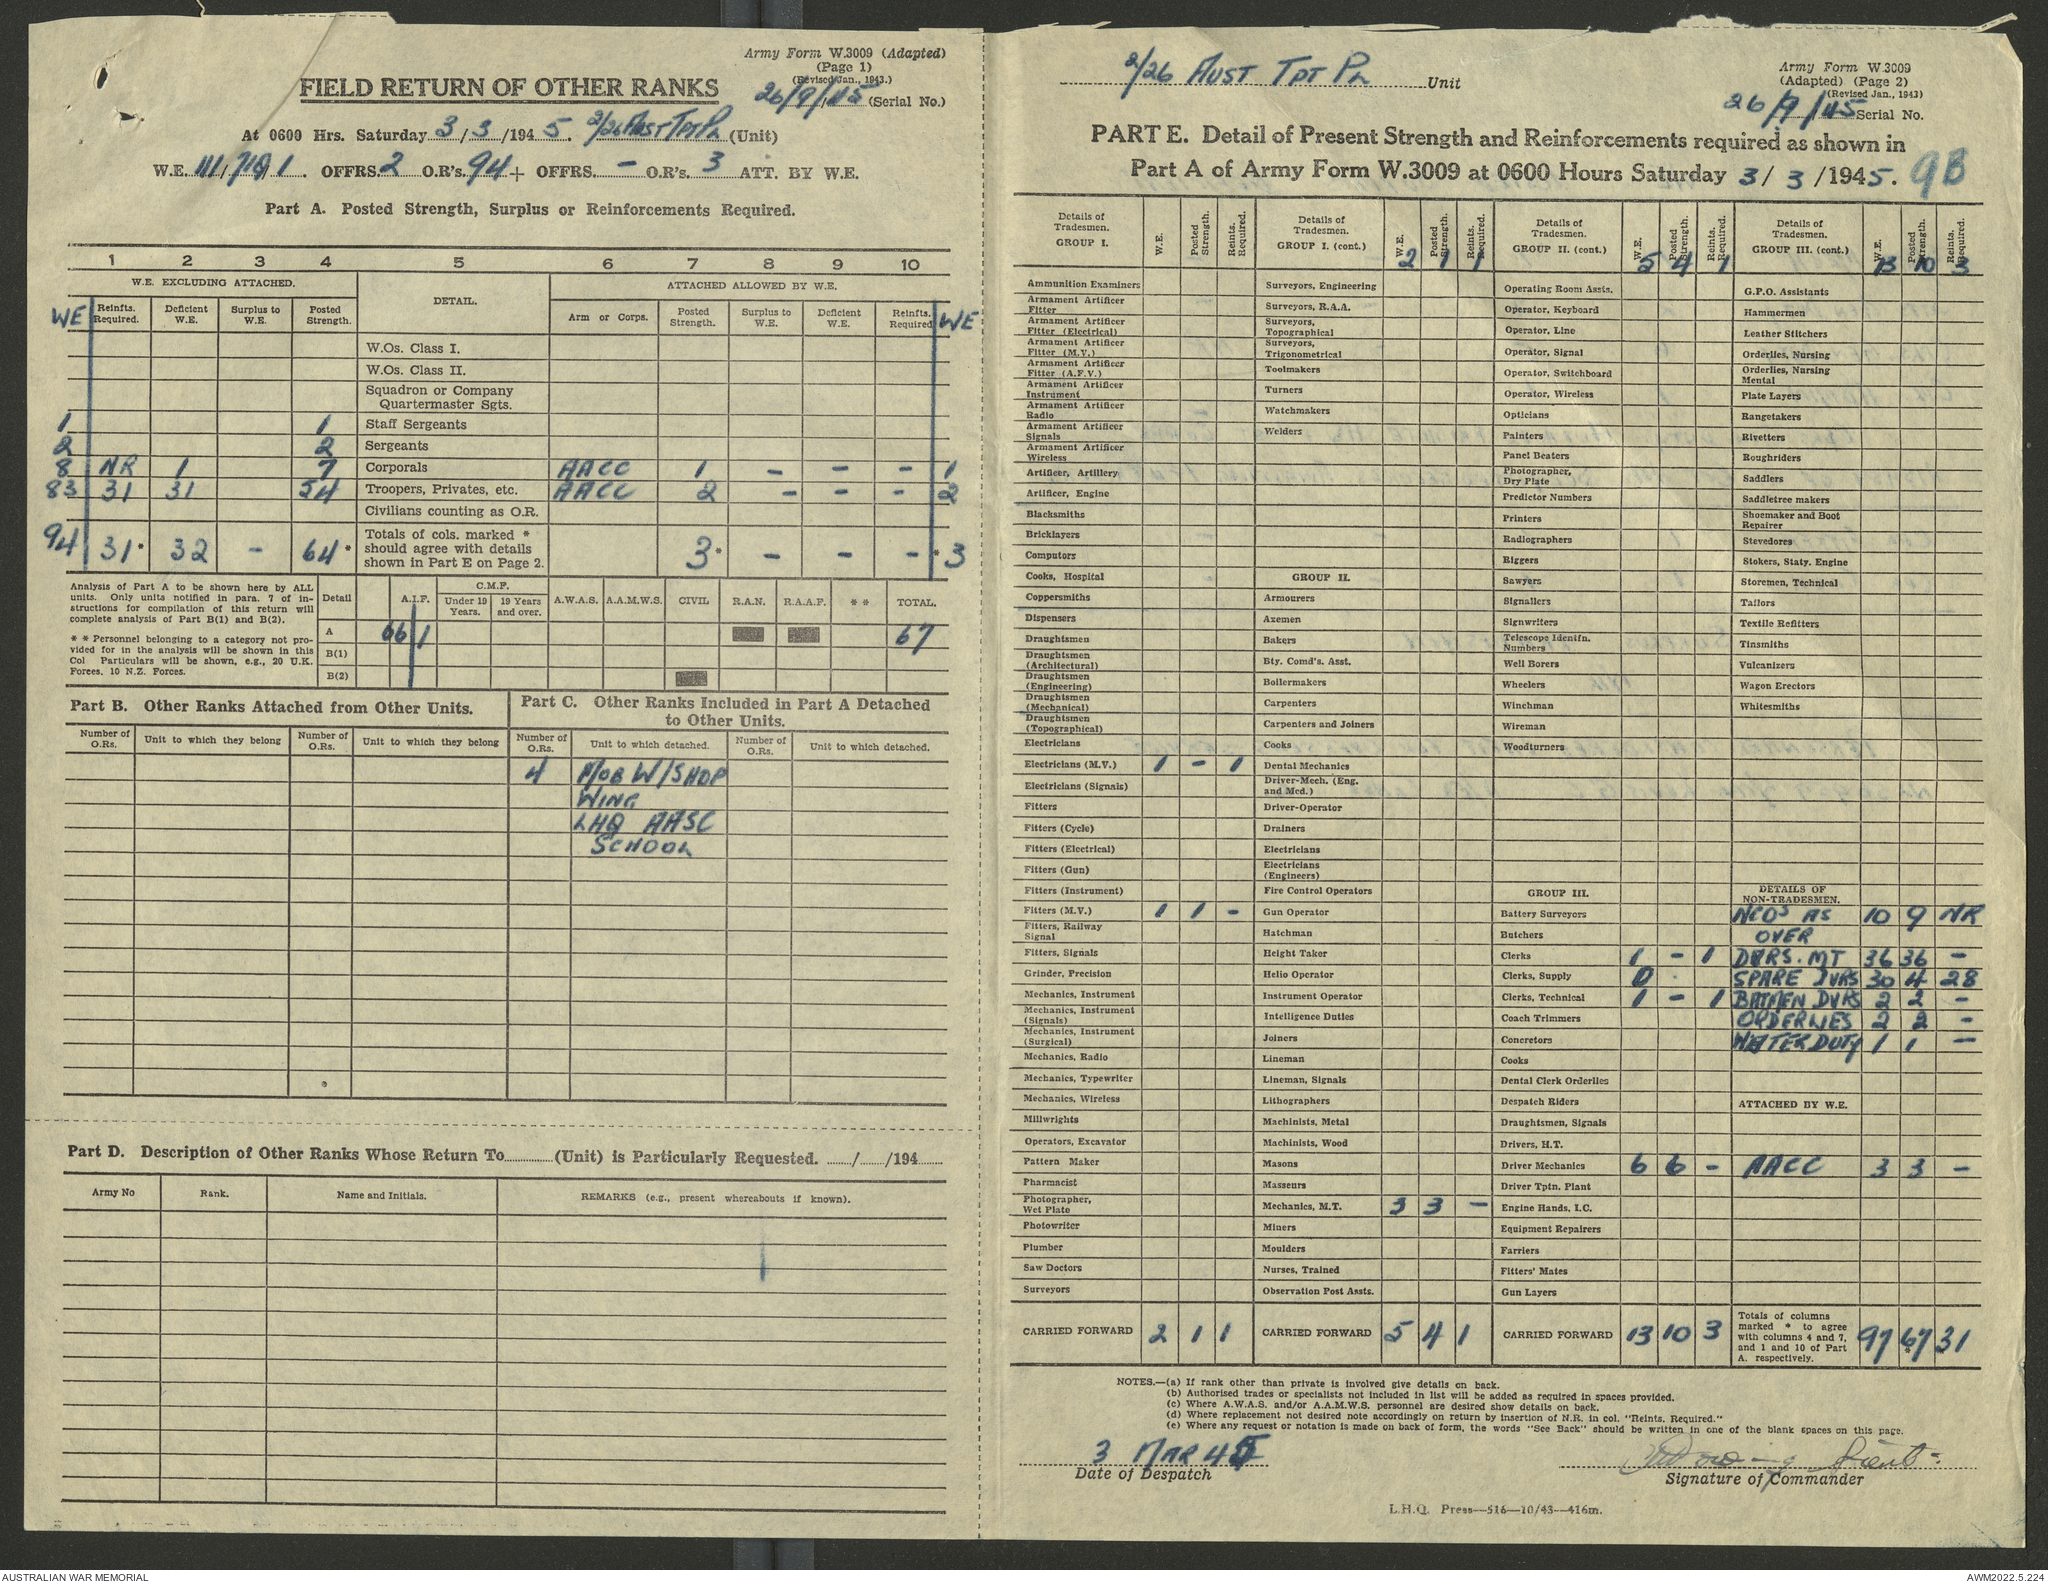 Army Form W.3009 (Adapted)
(Page 1)
(Revised Jan., 1943.)
FIELD RETURN OF OTHER RANKS
26/9/45 (Serial No.)
At 0600 Hrs. Saturday 3/3/1945. 2/26 Aust Tpt Pl (Unit)
W.E. III/ / . OFFRS. 2 O.R's. 94 + OFFRS. – O.R's. 3 ATT. BY W.E.
Part A. Posted Strength, Surplus or Reinforcements Required.
1 2 3 4 5 6 7 8 9 10
W.E. EXCLUDING ATTACHED. DETAIL. ATTACHED ALLOWED BY W.E.
WE Reinfts. Required. Deficient W.E. Surplus to W.E. Posted Strength. Arm or Corps. Posted Strength. Surplus to W.E. Deficient W.E. Reinfts. Required WE
W.Os. Class I.
W.Os. Class II.
Squadron or Company
Quartermaster Sgts.
1 1 Staff Sergeants
2 2 Sergeants
8 NR 1 7 Corporals AACC 1 – – – 1
83 31 31 54 Troopers, Privates, etc. AACC 2 – – – 2
Civilians counting as O.R.
94 31* 32 – 64* Totals of cols. marked * should agree with details shown in Part E on Page 2. 3* – – –* 3
Analysis of Part A to be shown here by ALL
units. Only units notified in para. 7 of in-
structions for compilation of this return will
complete analysis of Part B(1) and B(2).
* * Personnel belonging to a category not pro-
vided for in the analysis will be shown in this
Col Particulars will be shown, e.g., 20 U.K.
Forces, 10 N.Z. Forces.
Detail A.I.F. C.M.F. Under 19 Years. 19 Years and over. A.W.A.S. A.A.M.W.S. CIVIL R.A.N. R.A.A.F. * * TOTAL.
A 66 1 67
B(1)
B(2)
Part B. Other Ranks Attached from Other Units.
Part C. Other Ranks Included in Part A Detached
to Other Units.
Number of O.Rs. Unit to which they belong Number of O.Rs. Unit to which they belong Number of O.Rs. Unit to which detached. Number of O.Rs. Unit to which detached.
4 MOB W/SHOP
WING
LHQ AASC
SCHOOL
Part D. Description of Other Ranks Whose Return To (Unit) is Particularly Requested. / /194
Army No Rank. Name and Initials. REMARKS (e.g., present whereabouts if known).
2/26 AUST TPT PL Unit
Army Form W.3009
(Adapted) (Page 2)
(Revised Jan., 1943)
26/9/45 Serial No.
PART E. Detail of Present Strength and Reinforcements required as shown in
Part A of Army Form W.3009 at 0600 Hours Saturday 3/3/1945. 9B
Details of Tradesmen. GROUP I. W.E. Posted Strength. Reints. Required.
Ammunition Examiners
Armament Artificer Fitter
Armament Artificer Fitter (Electrical)
Armament Artificer Fitter (M.V.)
Armament Artificer Fitter (A.F.V.)
Armament Artificer Instrument
Armament Artificer Radio
Armament Artificer Signals
Armament Artificer Wireless
Artificer, Artillery
Artificer, Engine
Blacksmiths
Bricklayers
Computors
Cooks, Hospital
Coppersmiths
Dispensers
Draughtsmen
Draughtsmen (Architectural)
Draughtsmen (Engineering)
Draughtsmen (Mechanical)
Draughtsmen (Topographical)
Electricians
Electricians (M.V.) 1 – 1
Electricians (Signals)
Fitters
Fitters (Cycle)
Fitters (Electrical)
Fitters (Gun)
Fitters (Instrument)
Fitters (M.V.) 1 1 –
Fitters, Railway Signal
Fitters, Signals
Grinder, Precision
Mechanics, Instrument
Mechanics, Instrument (Signals)
Mechanics, Instrument (Surgical)
Mechanics, Radio
Mechanics, Typewriter
Mechanics, Wireless
Millwrights
Operators, Excavator
Pattern Maker
Pharmacist
Photographer, Wet Plate
Photowriter
Plumber
Saw Doctors
Surveyors
CARRIED FORWARD 2 1 1
Details of Tradesmen. GROUP I. (cont.) W.E. Posted Strength. Reints. Required. 2 1 1
Surveyors, Engineering
Surveyors, R.A.A.
Surveyors, Topographical
Surveyors, Trigonometrical
Toolmakers
Turners
Watchmakers
Welders
GROUP II.
Armourers
Axemen
Bakers
Bty. Comd's. Asst.
Boilermakers
Carpenters
Carpenters and Joiners
Cooks
Dental Mechanics
Driver-Mech. (Eng. and Med.)
Driver-Operator
Drainers
Electricians
Electricians (Engineers)
Fire Control Operators
Gun Operator
Hatchman
Height Taker
Helio Operator
Instrument Operator
Intelligence Duties
Joiners
Lineman
Lineman, Signals
Lithographers
Machinists, Metal
Machinists, Wood
Masons
Masseurs
Mechanics, M.T. 3 3 –
Miners
Moulders
Nurses, Trained
Observation Post Assts.
CARRIED FORWARD 5 4 1
Details of Tradesmen. GROUP II. (cont.) W.E. Posted Strength. Reints. Required. 5 4 1
Operating Room Assts.
Operator, Keyboard
Operator, Line
Operator, Signal
Operator, Switchboard
Operator, Wireless
Opticians
Painters
Panel Beaters
Photographer, Dry Plate
Predictor Numbers
Printers
Radiographers
Riggers
Sawyers
Signallers
Signwriters
Telescope Identifn. Numbers
Well Borers
Wheelers
Winchman
Wireman
Woodturners
GROUP III.
Battery Surveyors
Butchers
Clerks 1 – 1
Clerks, Supply 0
Clerks, Technical 1 – 1
Coach Trimmers
Concretors
Cooks
Dental Clerk Orderlies
Despatch Riders
Draughtsmen, Signals
Drivers, H.T.
Driver Mechanics 6 6 –
Driver Tptn. Plant
Engine Hands, I.C.
Equipment Repairers
Farriers
Fitters' Mates
Gun Layers
CARRIED FORWARD 13 10 3
Details of Tradesmen. GROUP III. (cont.) W.E. Posted Strength. Reints. Required. 13 10 3
G.P.O. Assistants
Hammermen
Leather Stitchers
Orderlies, Nursing
Orderlies, Nursing Mental
Plate Layers
Rangetakers
Rivetters
Roughriders
Saddlers
Saddletree makers
Shoemaker and Boot Repairer
Stevedores
Stokers, Staty. Engine
Storemen, Technical
Tailors
Textile Refitters
Tinsmiths
Vulcanizers
Wagon Erectors
Whitesmiths
DETAILS OF NON-TRADESMEN.
NCOS AS 10 9 NR
OVER
DVRS. MT 36 36 –
SPARE DVRS 30 4 28
BATMEN DVRS 2 2 –
ORDERLIES 2 2 –
WATER DUTY 1 1 –
ATTACHED BY W.E.
AACC 3 3 –
Totals of columns marked * to agree with columns 4 and 7, and 1 and 10 of Part A. respectively. 97 67* 31
NOTES.—(a) If rank other than private is involved give details on back.
(b) Authorised trades or specialists not included in list will be added as required in spaces provided.
(c) Where A.W.A.S. and/or A.A.M.W.S. personnel are desired show details on back.
(d) Where replacement not desired note accordingly on return by insertion of N.R. in col. "Reints. Required."
(e) Where any request or notation is made on back of form, the words "See Back" should be written in one of the blank spaces on this page.
3 MAR 45
Date of Despatch
Lieut
Signature of Commander
L.H.Q. Press—516—10/43—416m.
AUSTRALIAN WAR MEMORIAL
AWM2022.5.224